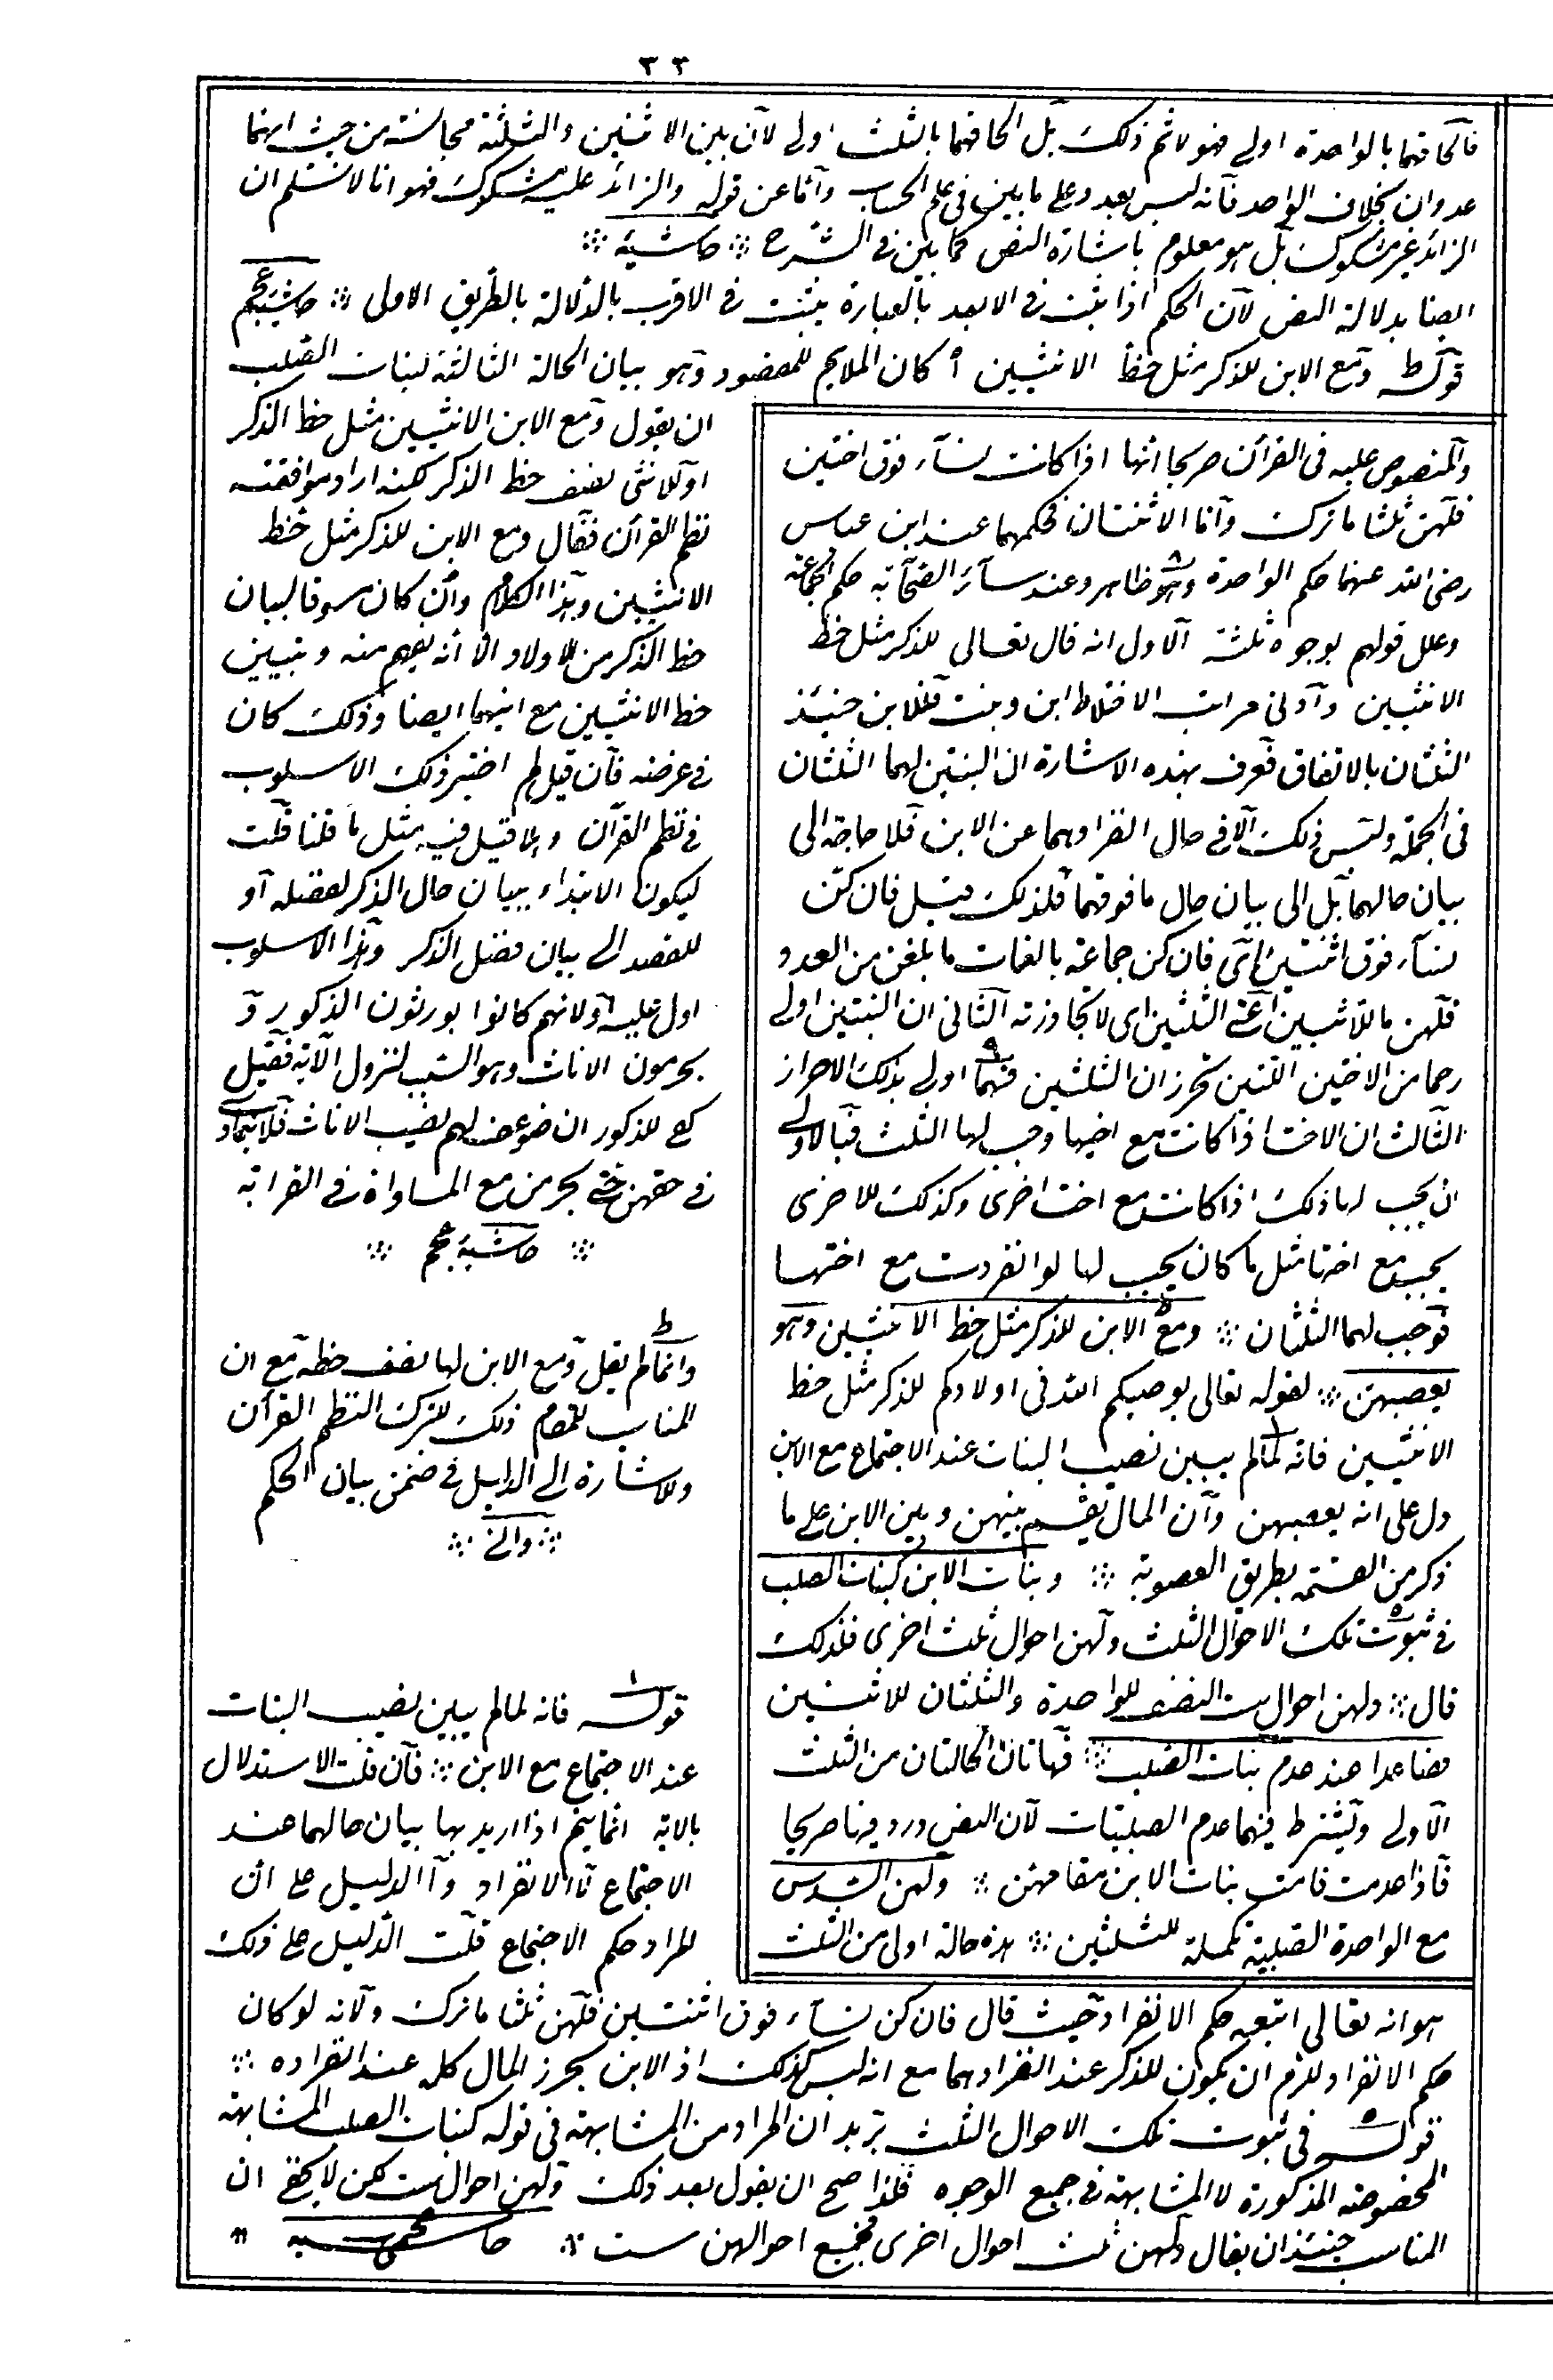 ٣٣
فالحاقهما بالواحدة اولى فهو لا ثم ذلك بل الحاقهما بالثلث اولى لان بين الاثنين والثلثة مجانسة من حيث انهما
عددان بخلاف الواحد فانه ليس بعدد على ما بين في علم الحساب واما عن قوله والزائد عليه مشكوك فهو انا لا نسلم ان
الزائد غير مشكوك بل هو معلوم باشارة النص كما بين في الشرح ∴ حاشية ∴
ايضا بدلالة النص لان الحكم اذا ثبت في الابعد بالعبارة يثبت في الاقرب بالدلالة بالطريق الاولى ∴ حاشية عجم
قوله ومع الابن للذكر مثل حظ الانثيين اه كان الملايم للمقصود وهو بيان الحالة الثالثة لبنات الصلب
والمنصوص عليه في القرآن صريحا انها اذا كانت نساء فوق اختين
فلهن ثلثا ما ترك واما الاثنتان فحكمهما عند ابن عباس
رضى الله عنهما حكم الواحدة وهو ظاهر وعند سائر الصحابة حكم الجماعة
وعلل قولهم بوجوه ثلثة الاول انه قال تعالى للذكر مثل حظ
الانثيين وادنى مراتب الاختلاط ابن وبنت فللابن حينئذ
الثلثان بالاتفاق فعرف بهذه الاشارة ان البنتين لهما الثلثان
في الجملة وليس ذلك الا في حال انفرادهما عن الابن فلا حاجة الى
بيان حالهما بل الى بيان حال ما فوقهما فلذلك قيل فان كن
نساء فوق اثنتين اى فان كن جماعة بالغات ما بلغن من العدد
فلهن ما للاثنتين اعنى الثلثين اى لا تجاوزنه الثاني ان البنتين اولى
رحما من الاختين اللتين تحرزان الثلثين فهما اولى بذلك الاحراز
الثالث ان الاخت اذا كانت مع اخيها وجب لها الثلث فبالاولى
ان يجب لها ذلك اذا كانت مع اخت اخرى وكذلك للاخرى
يجب مع اختها مثل ما كان يجب لها لو انفردت مع اختها
فوجب لهما الثلثان ∴ ومع الابن للذكر مثل حظ الانثيين وهو
يعصبهن ∴ لقوله تعالى يوصيكم الله في اولادكم للذكر مثل حظ
الانثيين فانه لما لم يبين نصيب البنات عند الاجتماع مع الابن
دل على انه يعصبهن وان المال يقسم بينهن وبين الابن على ما
ذكر من القسمة بطريق العصوبة ∴ وبنات الابن كبنات الصلب
في ثبوت تلك الاحوال الثلث ولهن احوال ثلث اخرى فلذلك
قال ∴ ولهن احوال ست النصف للواحدة والثلثان للاثنتين
فصاعدا عند عدم بنات الصلب ∴ فهاتان الحالتان من الثلث
الاولى ويشترط فيهما عدم الصلبيات لان النص ورد فيها صريحا
فاذا عدمت قامت بنات الابن مقامهن ∴ ولهن السدس
مع الواحدة الصلبية تكملة للثلثين ∴ هذه حالة اولى من الثلث
ان يقول ومع الابن الانثيين مثل حظ الذكر
او للانثى نصف حظ الذكر لكنه اراد موافقة
نظم القرآن فقال ومع الابن للذكر مثل حظ
الانثيين وهذا الكلام وان كان مسوقا لبيان
حظ الذكر من الاولاد الا انه يفهم منه وتبيين
حظ الانثيين مع ابنهما ايضا وذلك كان
في غرضه فان قيل لم اختير ذلك الاسلوب
في نظم القرآن وهلا قيل فيه مثل ما قلنا قلت
ليكون الابتداء ببيان حال الذكر لفضله او
للقصد الى بيان فضل الذكر وهذا الاسلوب
ادل عليه او لانهم كانوا يورثون الذكور و
يحرمون الاناث وهو السبب لنزول الآية فقيل
كفى للذكور ان ضوعف لهم نصيب الاناث فلا يتمادى
في حقهن حتى يحرمن مع المساواة في القرابة
∴ حاشية عجم ∴
وانما لم يقل ومع الابن لها نصف حظه مع ان
المناسب للمقام ذلك للتبرك النظم القرآن
وللاشارة الى الدليل في ضمن بيان الحكم
∴ والى ∴
قوله فانه لما لم يبين نصيب البنات
عند الاجتماع مع الابن ∴ فان قلت الاستدلال
بالاية انما يتم اذا اريد بها بيان حالهما عند
الاجتماع لا الانفراد وما الدليل على ان
المراد حكم الاجتماع قلت الدليل على ذلك
هو انه تعالى اتبعه حكم الانفراد حيث قال فان كن نساء فوق اثنتين فلهن ثلثا ما ترك ولانه لو كان
حكم الانفراد للزم ان يكون للذكر عند انفرادهما مع انه ليس كذلك اذ الابن يحرز المال كله عند انفراده ∴
قوله في ثبوت تلك الاحوال الثلث يريد ان المراد من المشابهة في قوله كبنات الصلب المشابهة
المخصوصة المذكورة لا المشابهة في جميع الوجوه فلذا صح ان يقول بعد ذلك ولهن احوال ست لكن لا يخفى ان
المناسب حينئذ ان يقال ولهن ثلث احوال اخرى فجميع احوالهن ست ∴ حاشية عجم